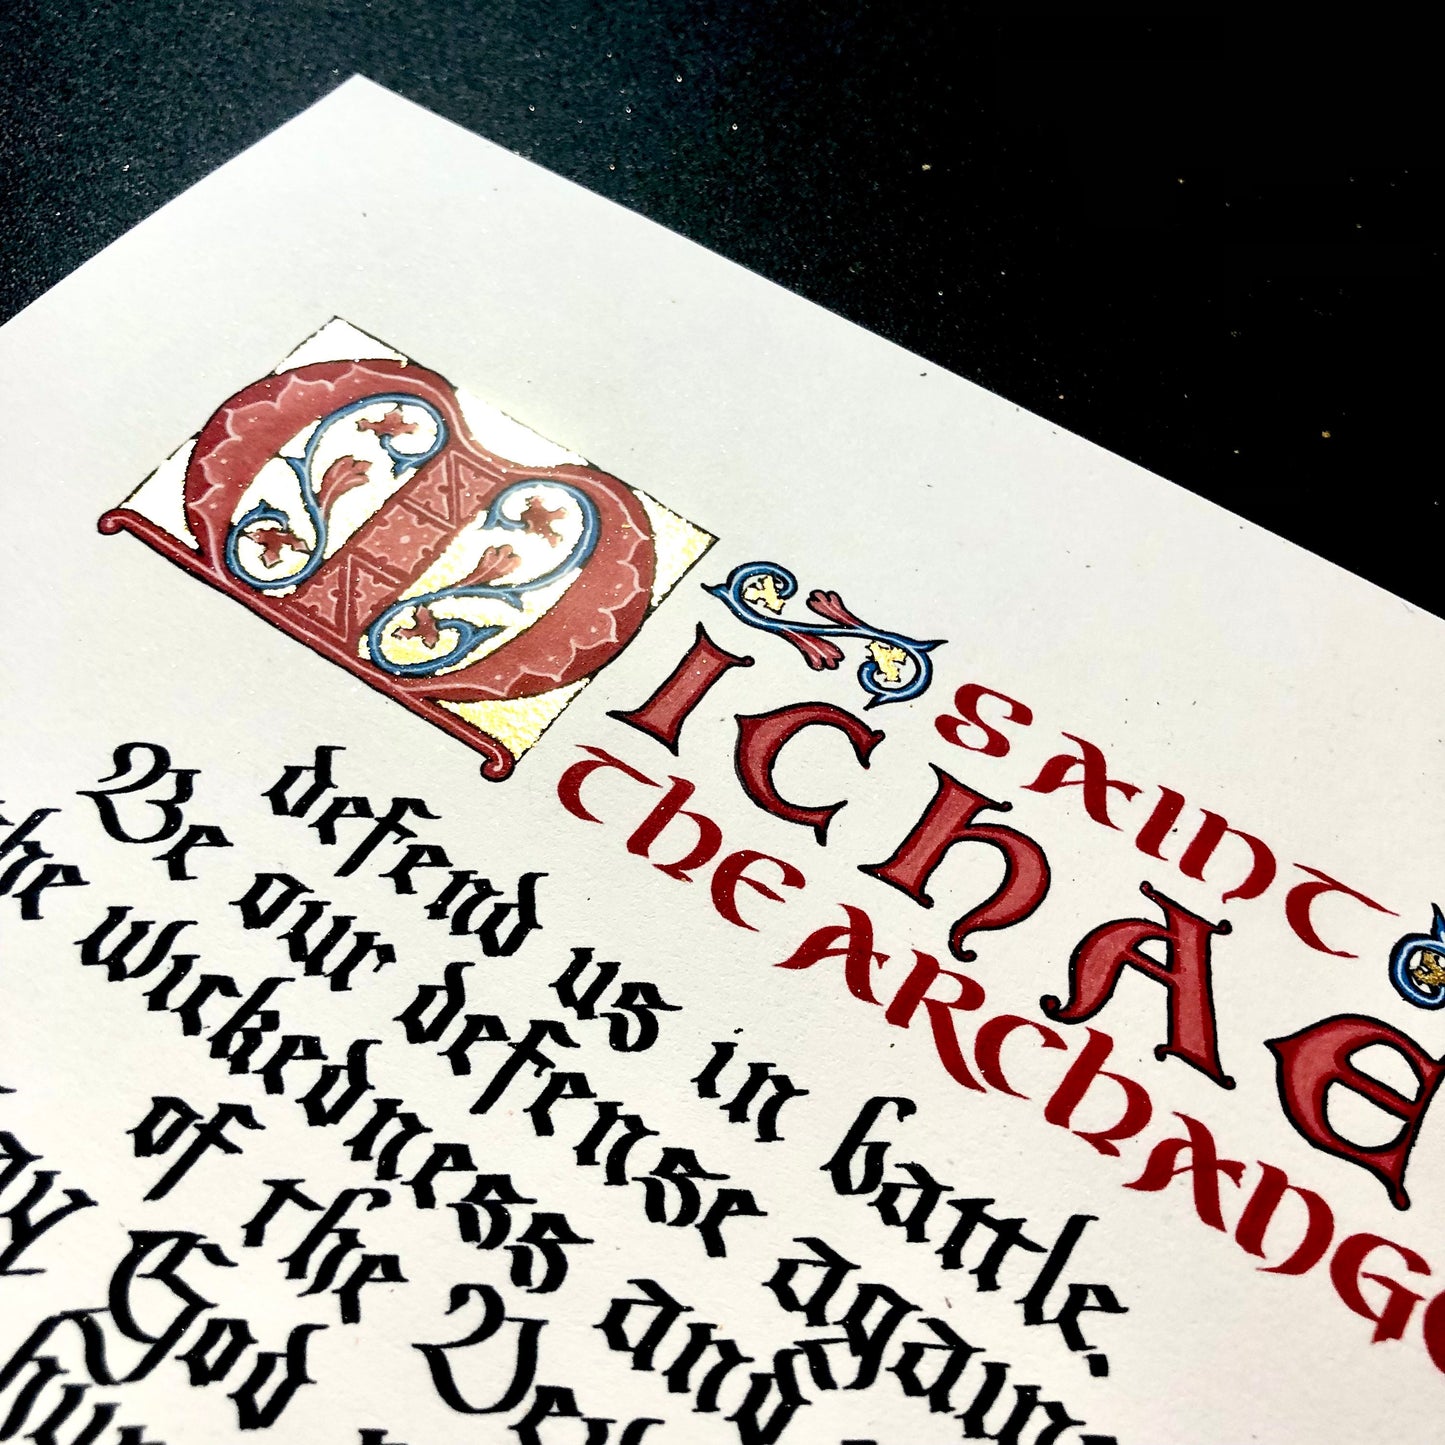 SAINT
MICHAE
THE ARCHANG
defend us in battle.
Be our defense again
the wickedness and
of the
God